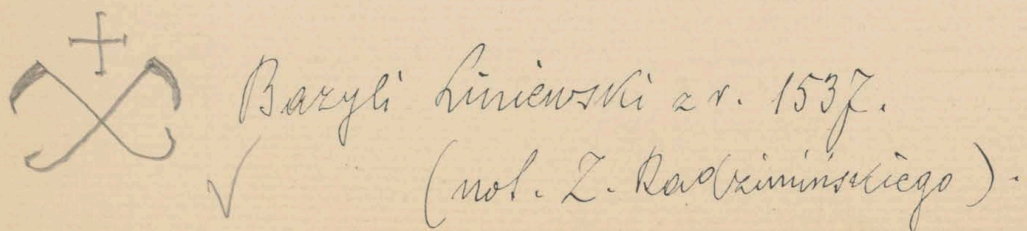 Bazyli Liniewski z r. 1537.
(not. Z. Radzimińskiego).